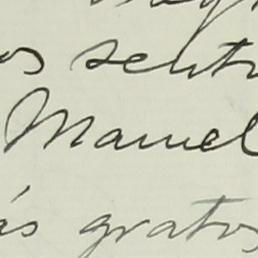 os sentir
Manuel
ás gratos